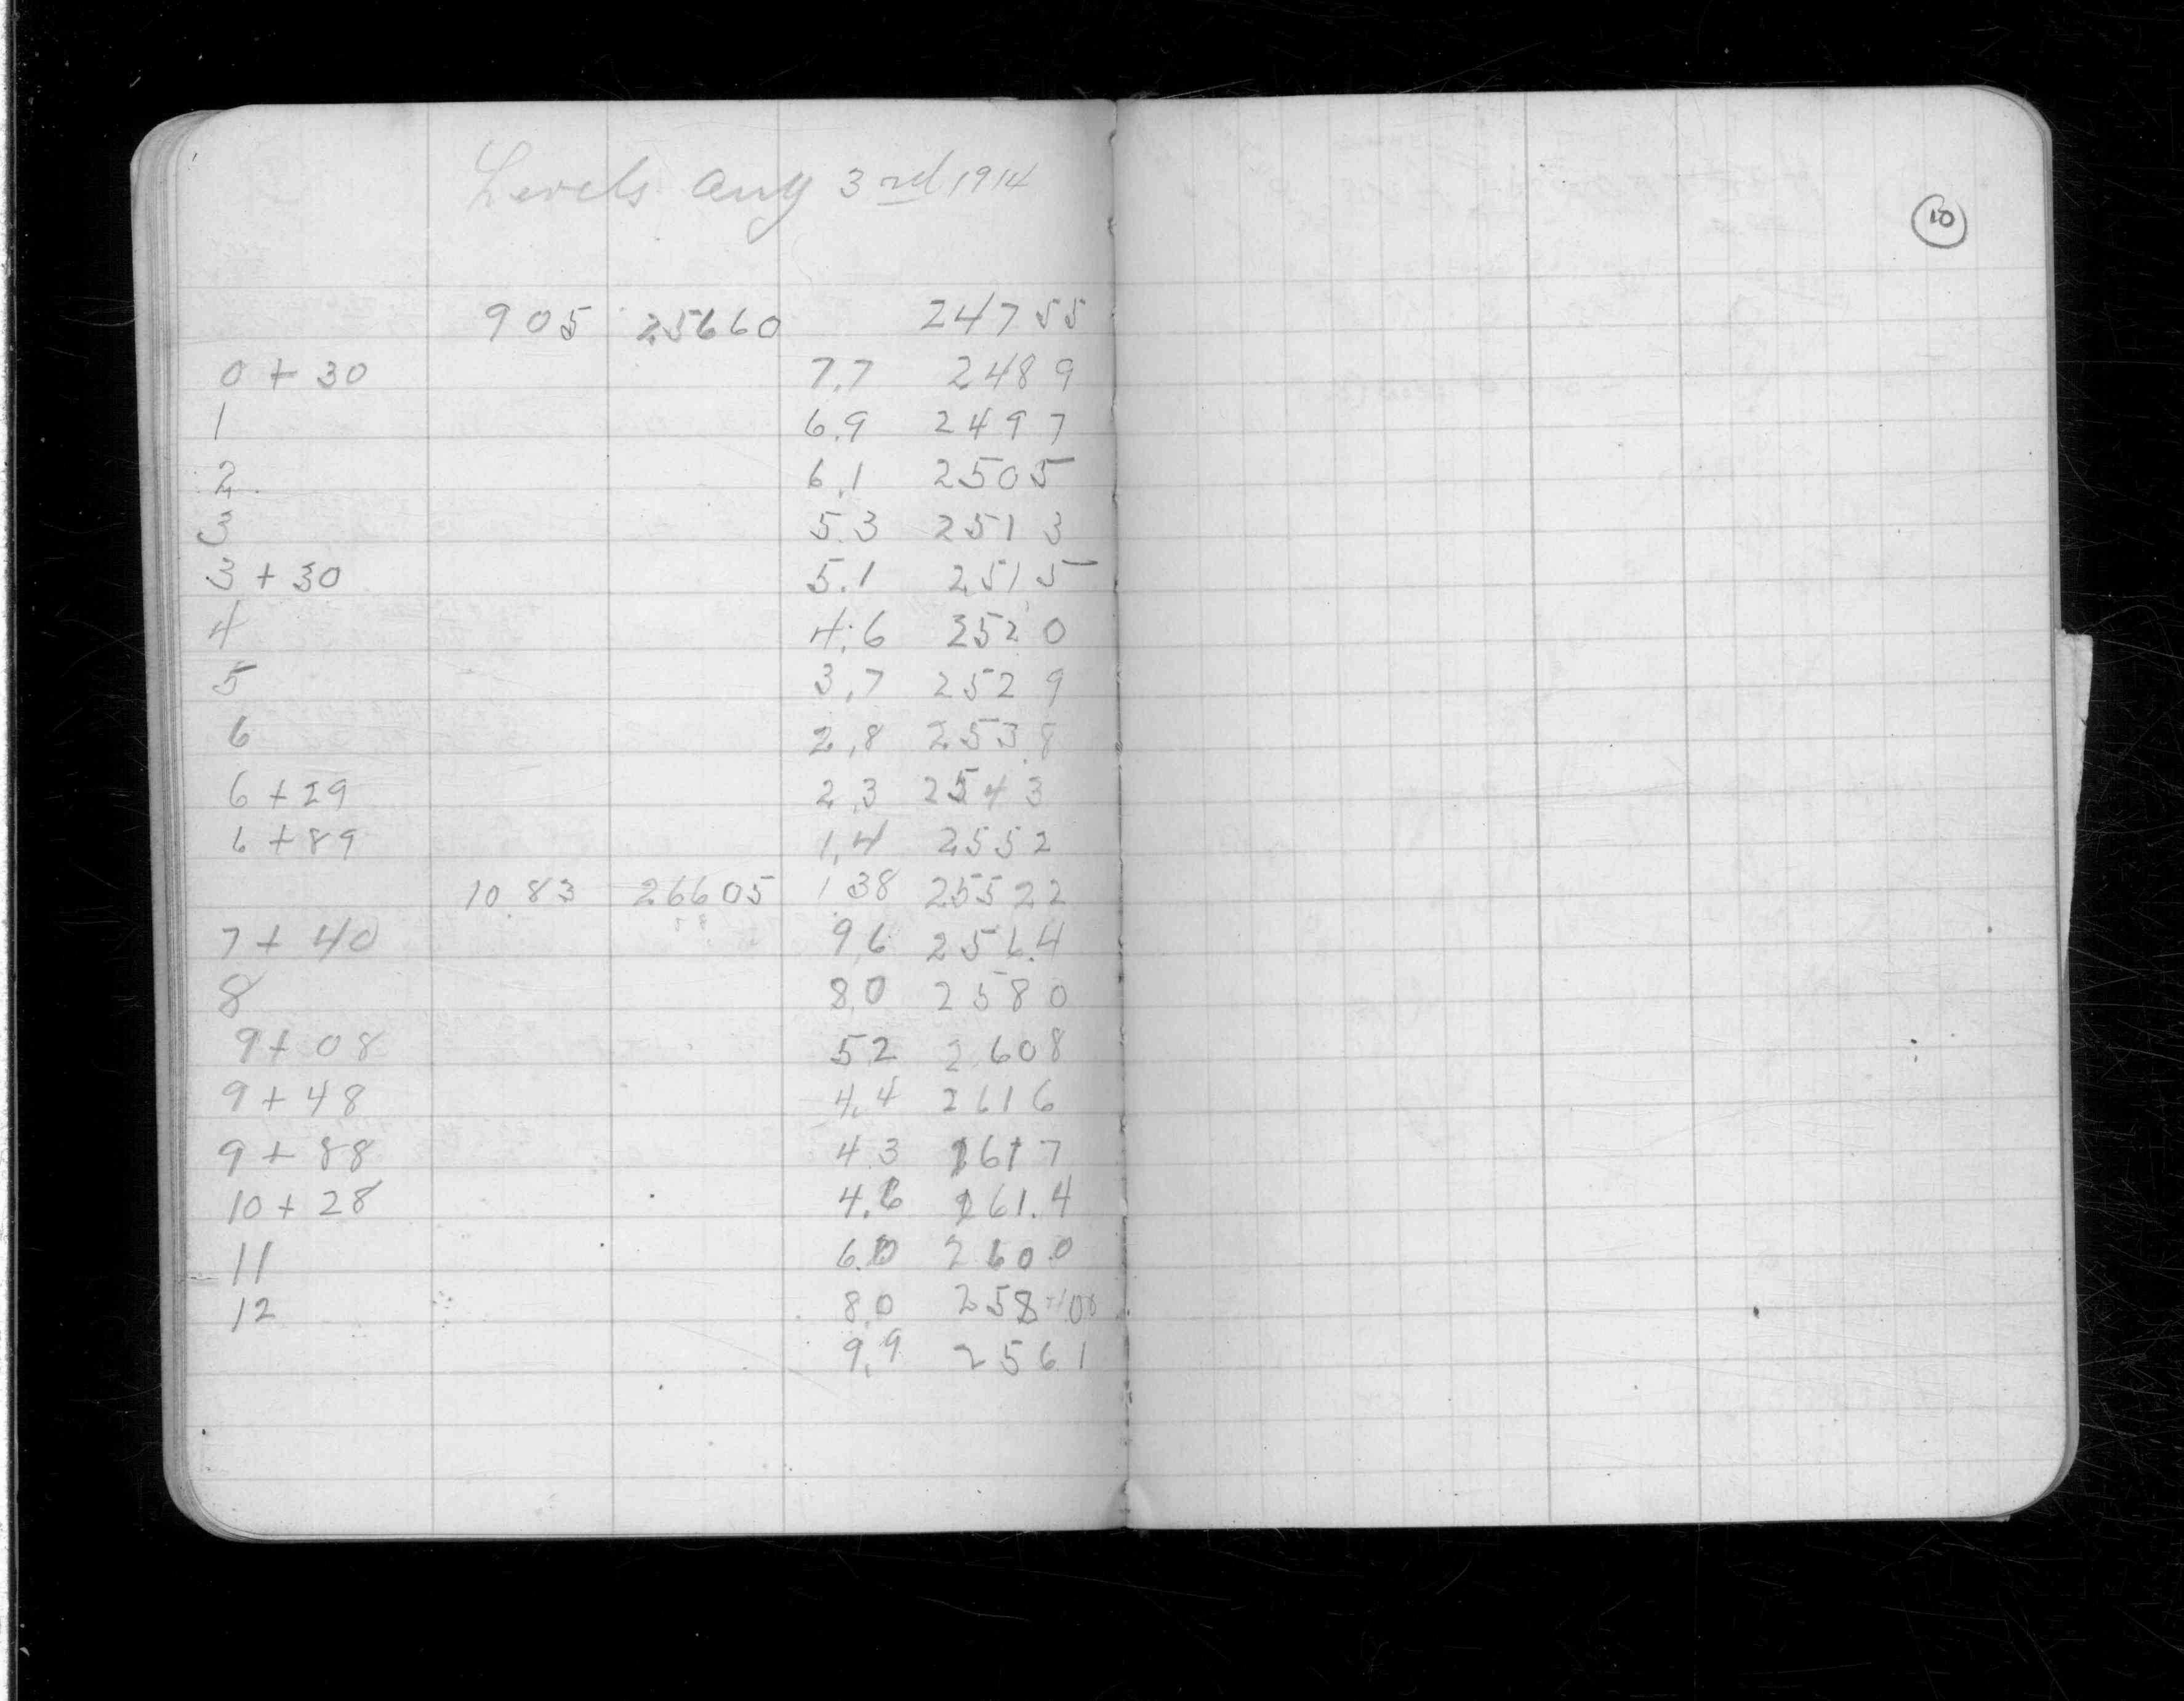 Levels Aug 3rd 1914
10
905 25660 24755
0 + 30 7.7 2489
1 6.9 2497
2 6.1 2505
3 5.3 2513
3 + 30 5.1 2515
4 4.6 2520
5 3.7 2529
6 2.8 253.8
6 + 29 2.3 2543
6 + 89 1.4 2552
10.83 26605 1.38 25522
7 + 40 9.6 256.4
8 8.0 2580
9 + 08 52 2608
9 + 48 4.4 2616
9 + 88 4.3 2617
10 + 28 4.6 261.4
11 6.0 260.0
12 8.0 258
9.9 2561